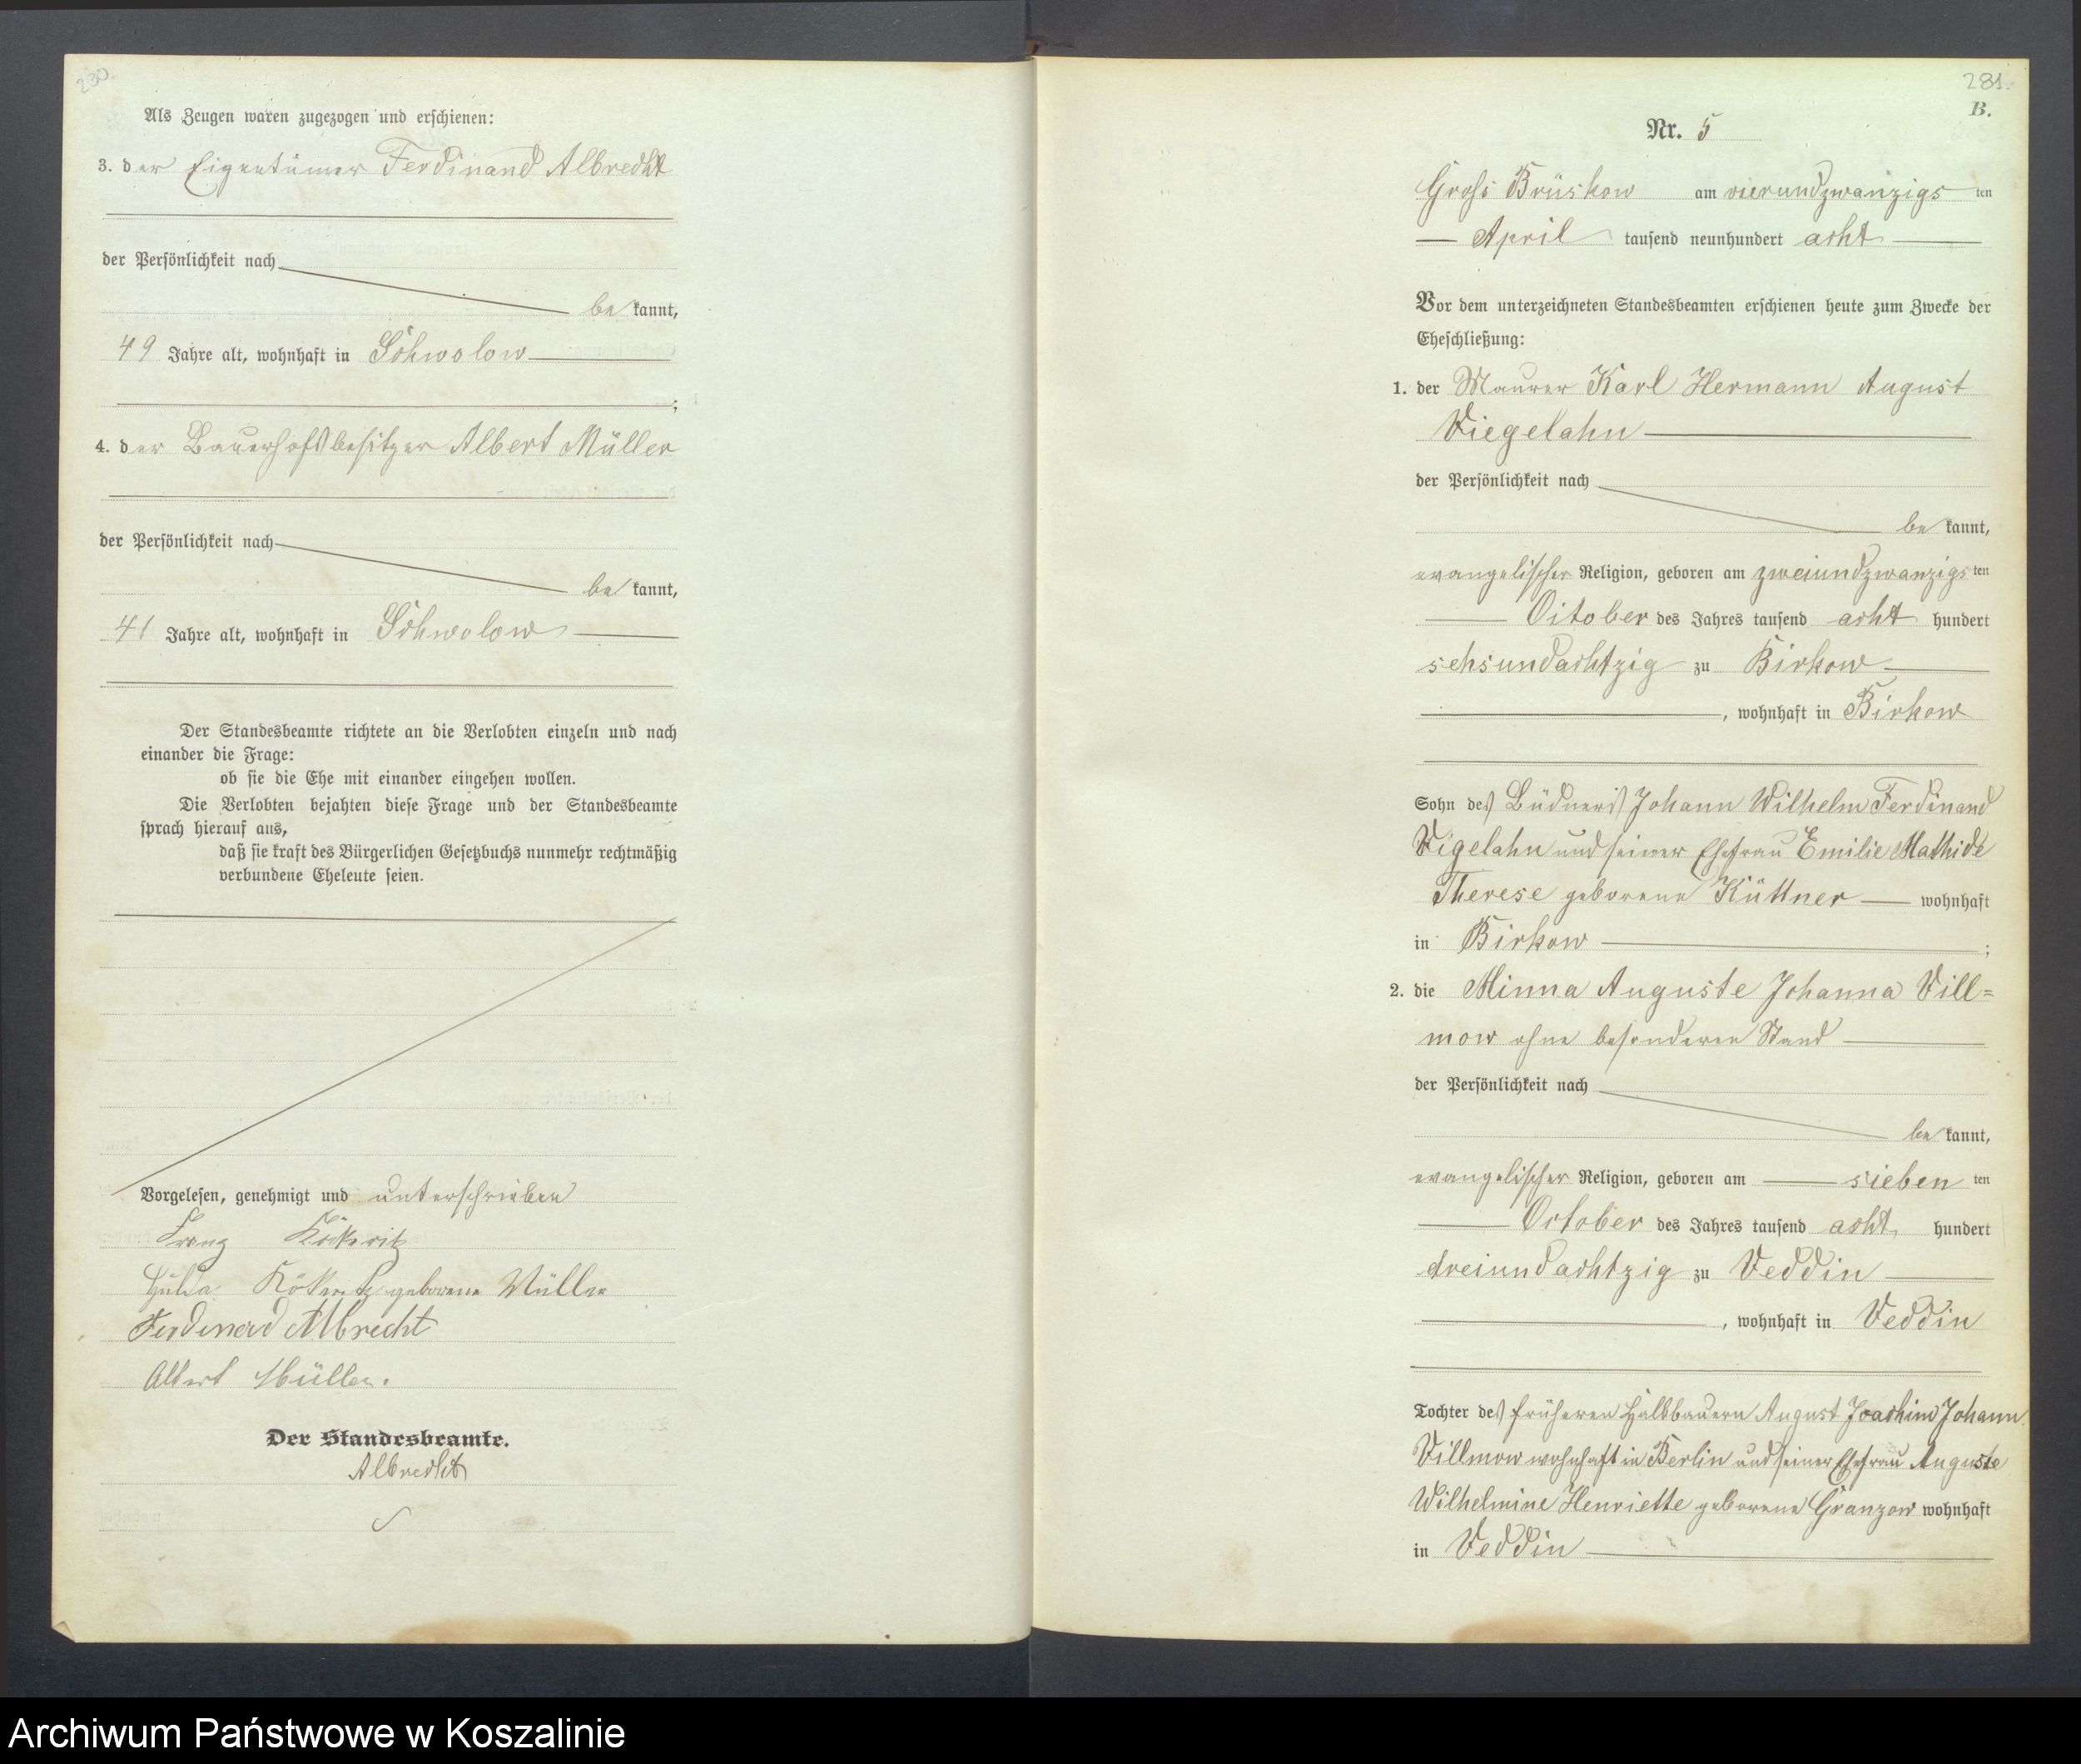 230.
Als Zeugen waren zugezogen und erschienen:
3. der Eigentümer Ferdinand Albrecht
der Persönlichkeit nach
bekannt,
49 Jahre alt, wohnhaft in Schwolow
;
4. der Bauerhofsbesitzer Albert Müller
der Persönlichkeit nach
bekannt,
41 Jahre alt, wohnhaft in Schwolow
Der Standesbeamte richtete an die Verlobten einzeln und nach
einander die Frage:
ob sie die Ehe mit einander eingehen wollen.
Die Verlobten bejahten diese Frage und der Standesbeamte
sprach hierauf aus,
daß sie kraft des Bürgerlichen Gesetzbuchs nunmehr rechtmäßig
verbundene Eheleute seien.
Vorgelesen, genehmigt und unterschrieben
Franz Kökeritz
Hulda Kökeritz geborene Müller
Ferdinand Albrecht
Albert Müller.
Der Standesbeamte.
Albrecht
281.
B.
Nr. 5
Gross Brüskow am vierundzwanzigsten
April tausend neunhundert acht
Vor dem unterzeichneten Standesbeamten erschienen heute zum Zwecke der
Eheschließung:
1. der Maurer Karl Hermann August
Viegelahn
der Persönlichkeit nach
bekannt,
evangelischer Religion, geboren am zweiundzwanzigsten
October des Jahres tausend acht hundert
sehsundachtzig zu Birkow
, wohnhaft in Birkow
Sohn des Büdners Johann Wilhelm Ferdinand
Vigelahn und seiner Ehefrau Emilie Mathide
Therese geborene Küttner wohnhaft
in Birkow ;
2. die Minna Auguste Johanna Vill=
mow ohne besonderen Stand
der Persönlichkeit nach
bekannt,
evangelischer Religion, geboren am siebenten
October des Jahres tausend acht hundert
dreiundachtzig zu Veddin
, wohnhaft in Veddin
Tochter des früheren Halbbauern August Joachim Johann
Villmow wohnhaft in Berlin und seiner Ehefrau Auguste
Wilhelmine Henriette geborene Granzow wohnhaft
in Veddin
Archiwum Państwowe w Koszalinie